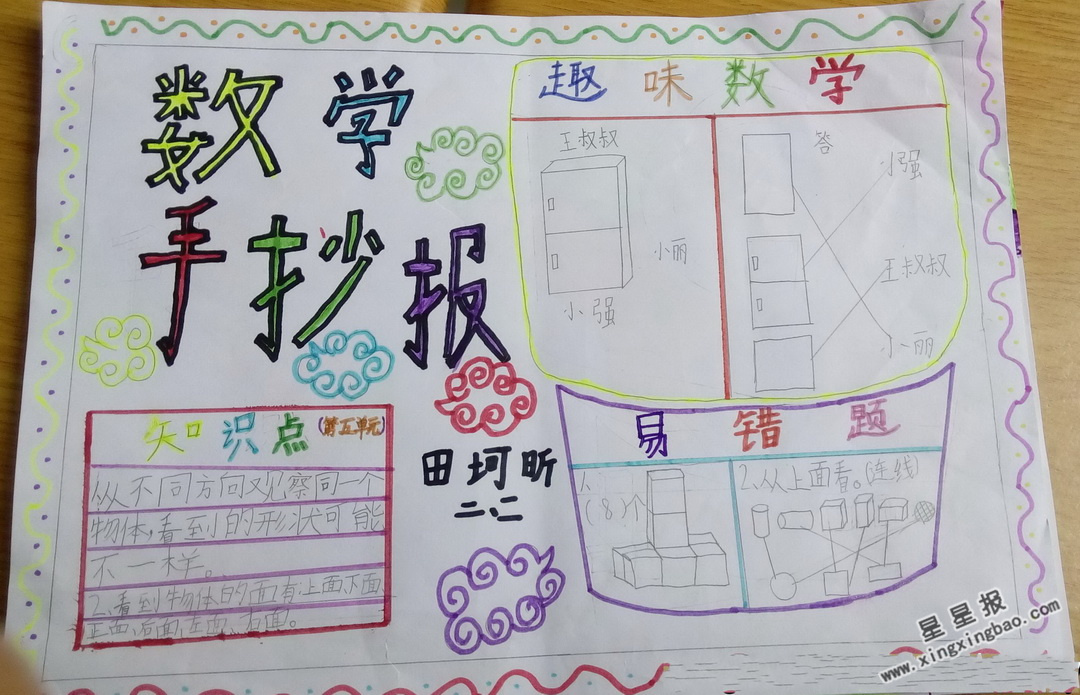 数学
手抄报
趣味数学
王叔叔
小丽
小强
答
小强
王叔叔
小丽
知识点(第五单元)
从不同方向观察同一个
物体,看到的形状可能
不一样。
2、看到物体的面有:上面、下面
正面、后面、左面、右面。
田坷昕
二、二
易错题
1、
(8)个
2、从上面看。(连线)
星星报
www.xingxingbao.com